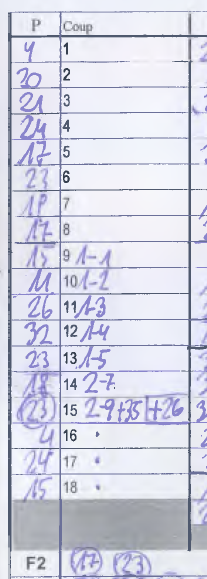 P Coup
4 1
20 2
21 3
24 4
17 5
23 6
18 7
17 8
15 9 1-1
11 10 1-2
26 11 1-3
32 12 1-4
23 13 1-5
18 14 2-7
23 15 2-9+35 +26
4 16
24 17
15 18
F2 17 23